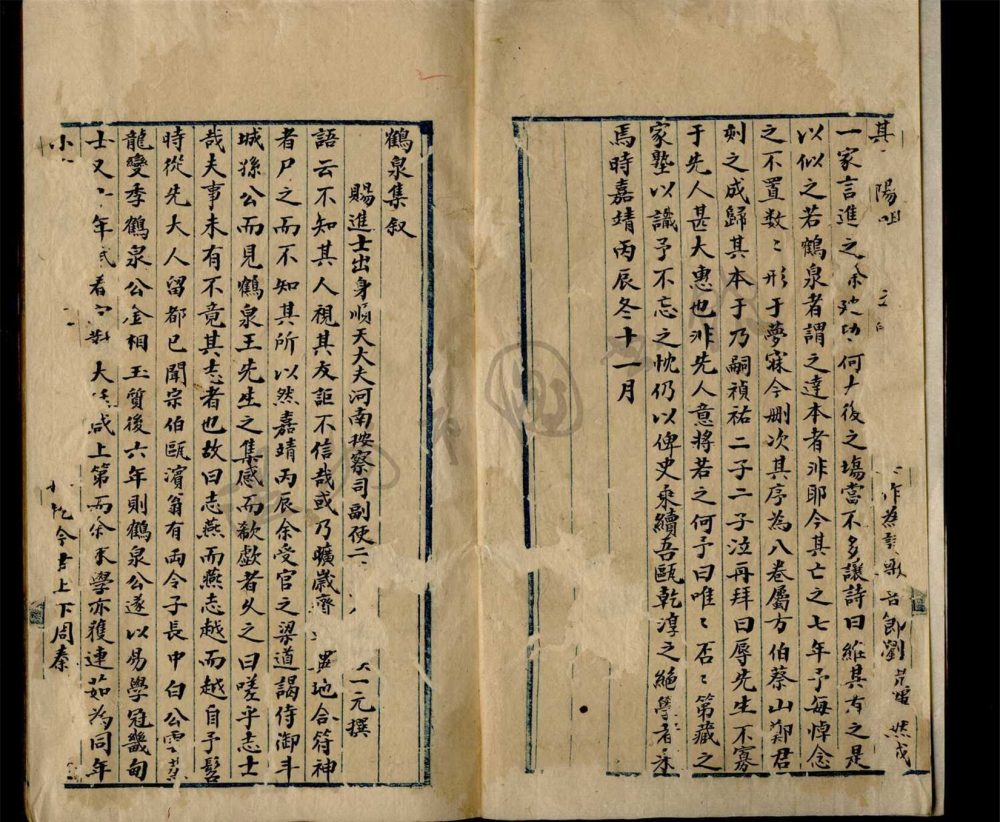 其 陽
作 郎劉 然成
一家言進之 何 後之塲當不多讓詩曰維其有之是
以似之若鶴泉者謂之達本者非耶今其亡之七年予每悼念
之不置数〻形于夢寐今刪次其序為八卷屬方伯蔡山鄭君
刻之成歸其本于乃嗣禎祐二子二子泣再拜曰辱先生不寡
于先人甚大惠也非先人意將若之何予曰唯〻否〻第藏之
家塾以識予不忘之忱仍以俾史乘續吾甌乾淳之絕學者采
焉時嘉靖丙辰冬十一月
鶴泉集叙
賜進士出身順天大夫河南按察司副使 一元撰
語云不知其人視其友詎不信哉或乃曠歲齊 異地合符神
者尸之而不知其所以然嘉靖丙辰余受官之梁道謁侍御斗
城孫公而見鶴泉王先生之集感而歔欷者久之曰嗟乎志士
哉夫事未有不竟其志者也故曰志燕而燕志越而越自予髫
時從先大人留都已聞宗伯甌濱翁有両令子長中白公雲
龍變季鶴泉公金相玉質後六年則鶴泉公遂以易學冠畿甸
士又 年 看 大 咸上第而余末學亦獲連茹為同年
小 上下周秦